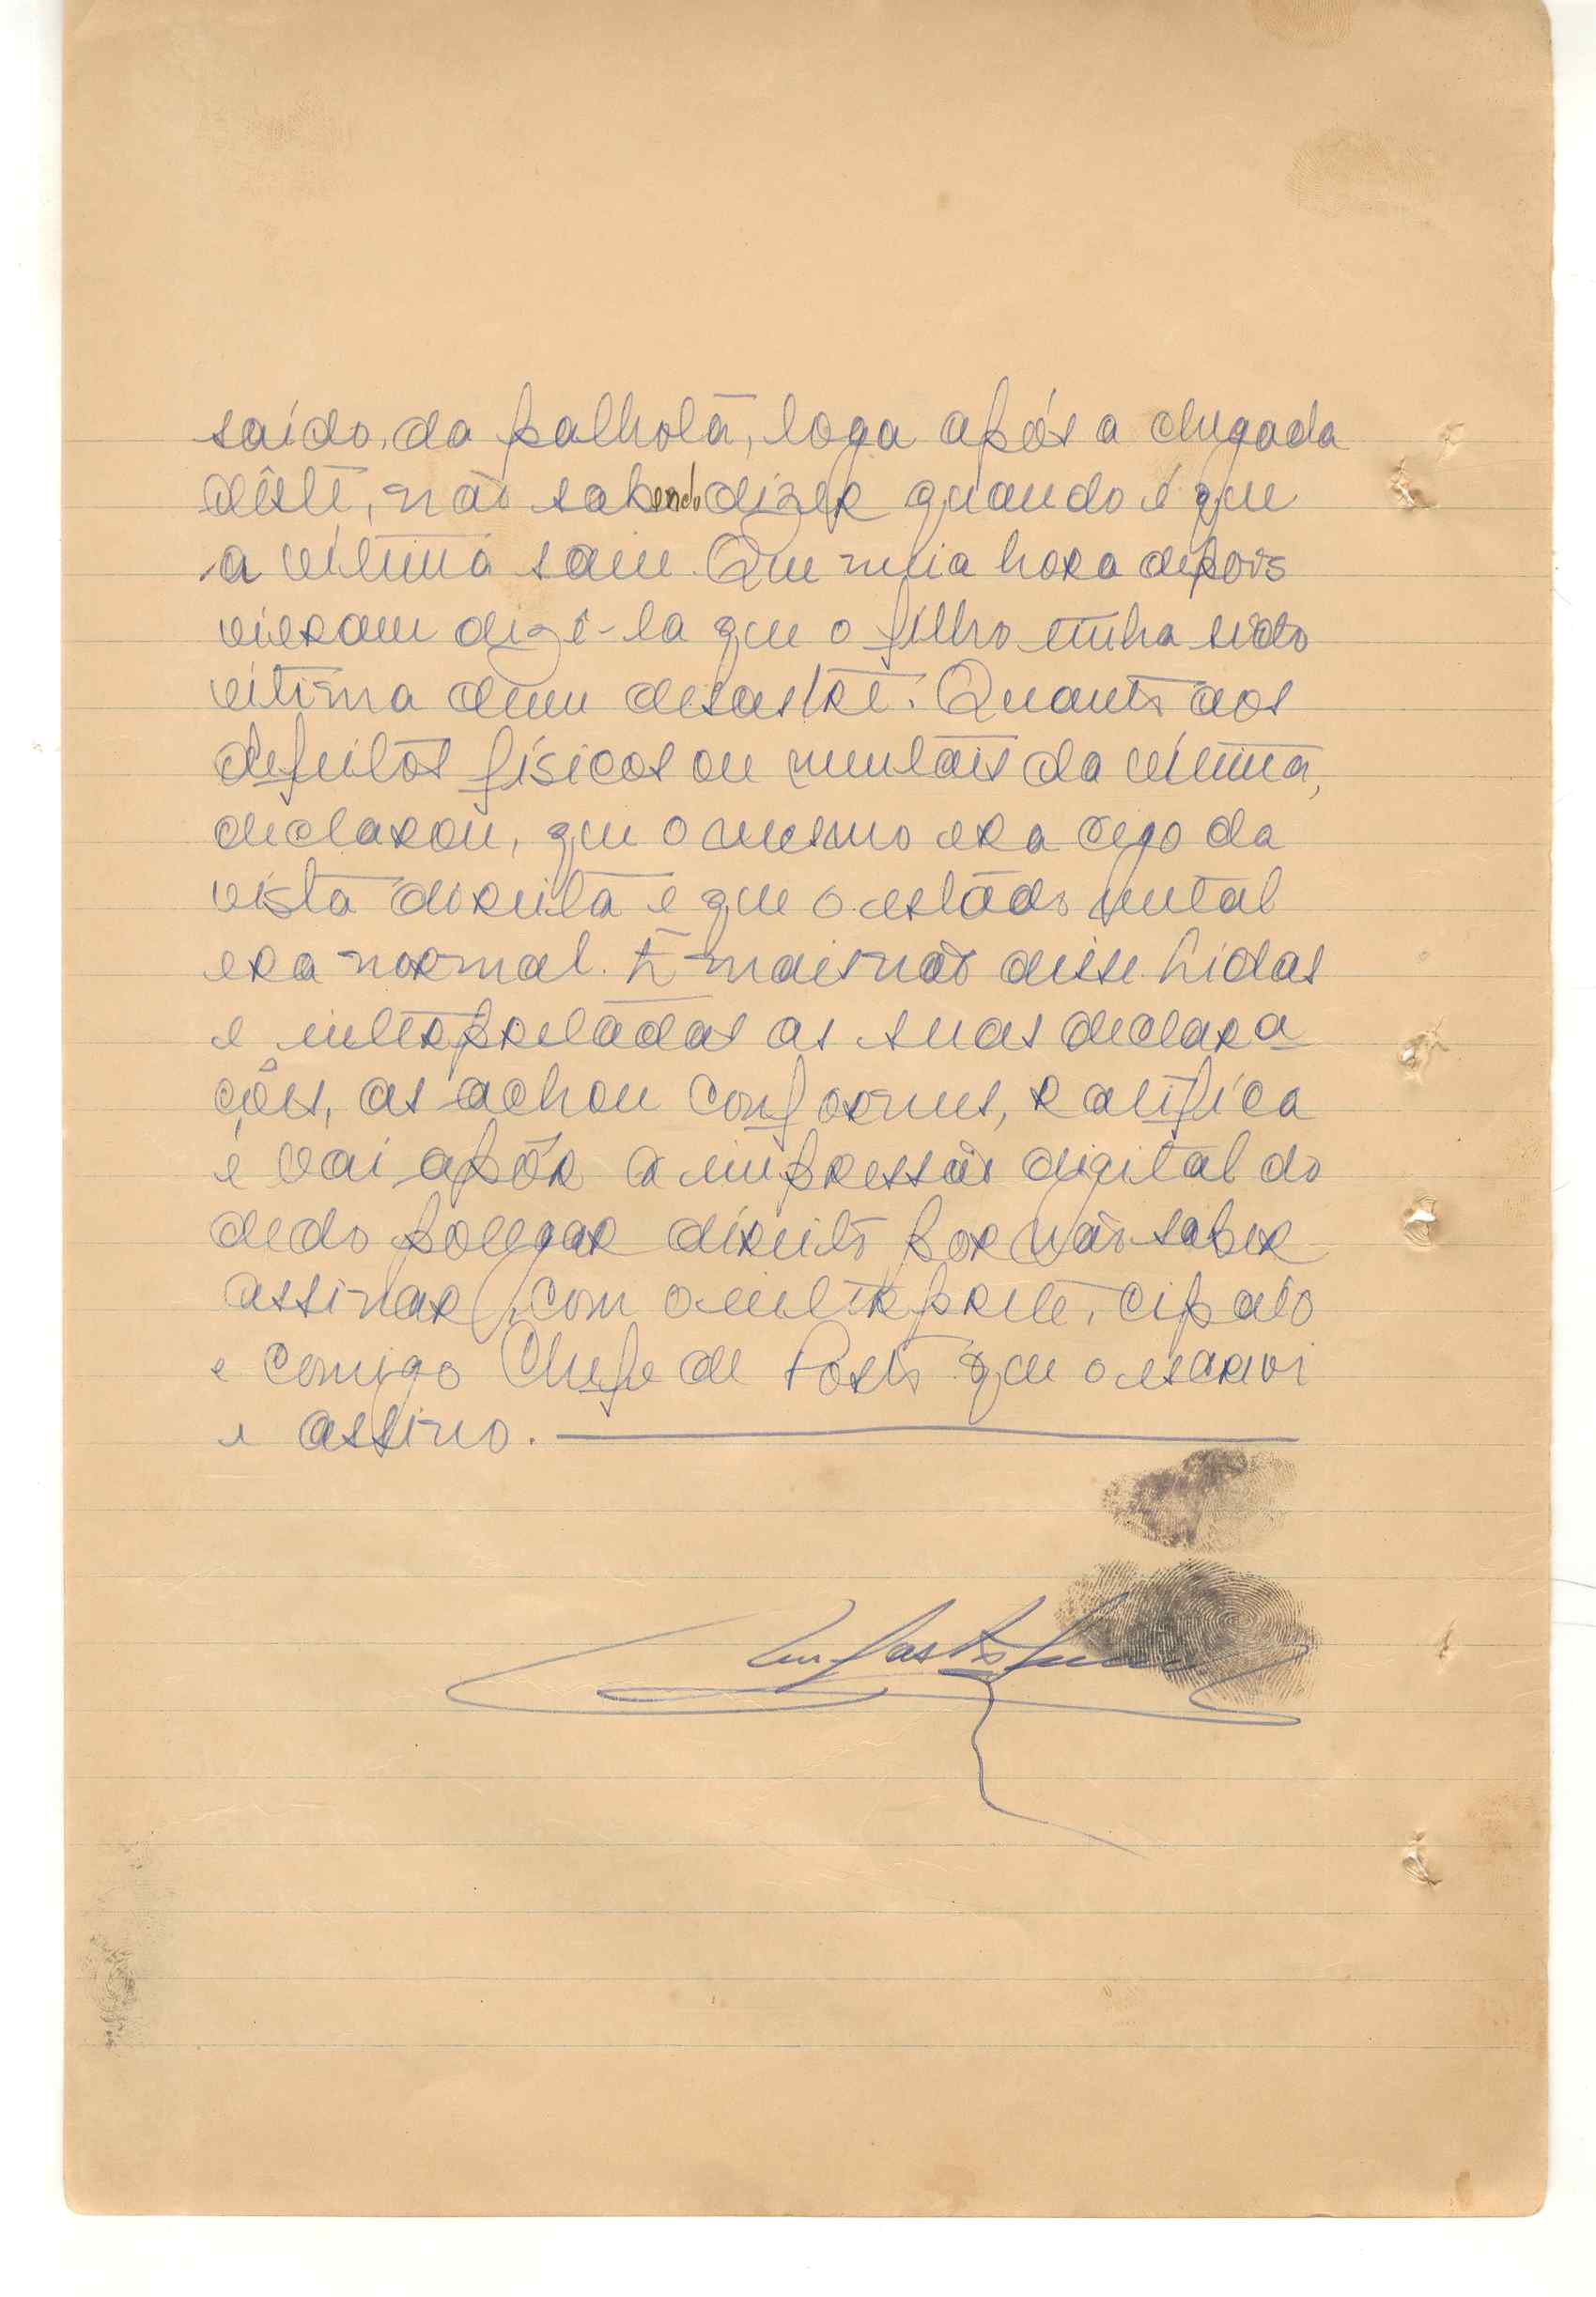 saído, da palhota, loga após a chegada
dêste, não sabendo dizer quando é que
a vitima saiu. Que meia hora depois
vieram dizê-la que o filho tinha sido
vitima dum desastre. Quanto aos
defeitos físicos ou mentais da vitima,
declarou, que o mesmo era cego da
vista direita e que o estado mental
era normal. E mais não disse. Lidas
e interpretadas as suas declara
ções, as achou conformes, ratifica
e vai apôr a impressão digital do
dedo polegar direito por não saber
assinar, com o intérprete, cipaio
e comigo Chefe de Posto que o escrevi
e assino.